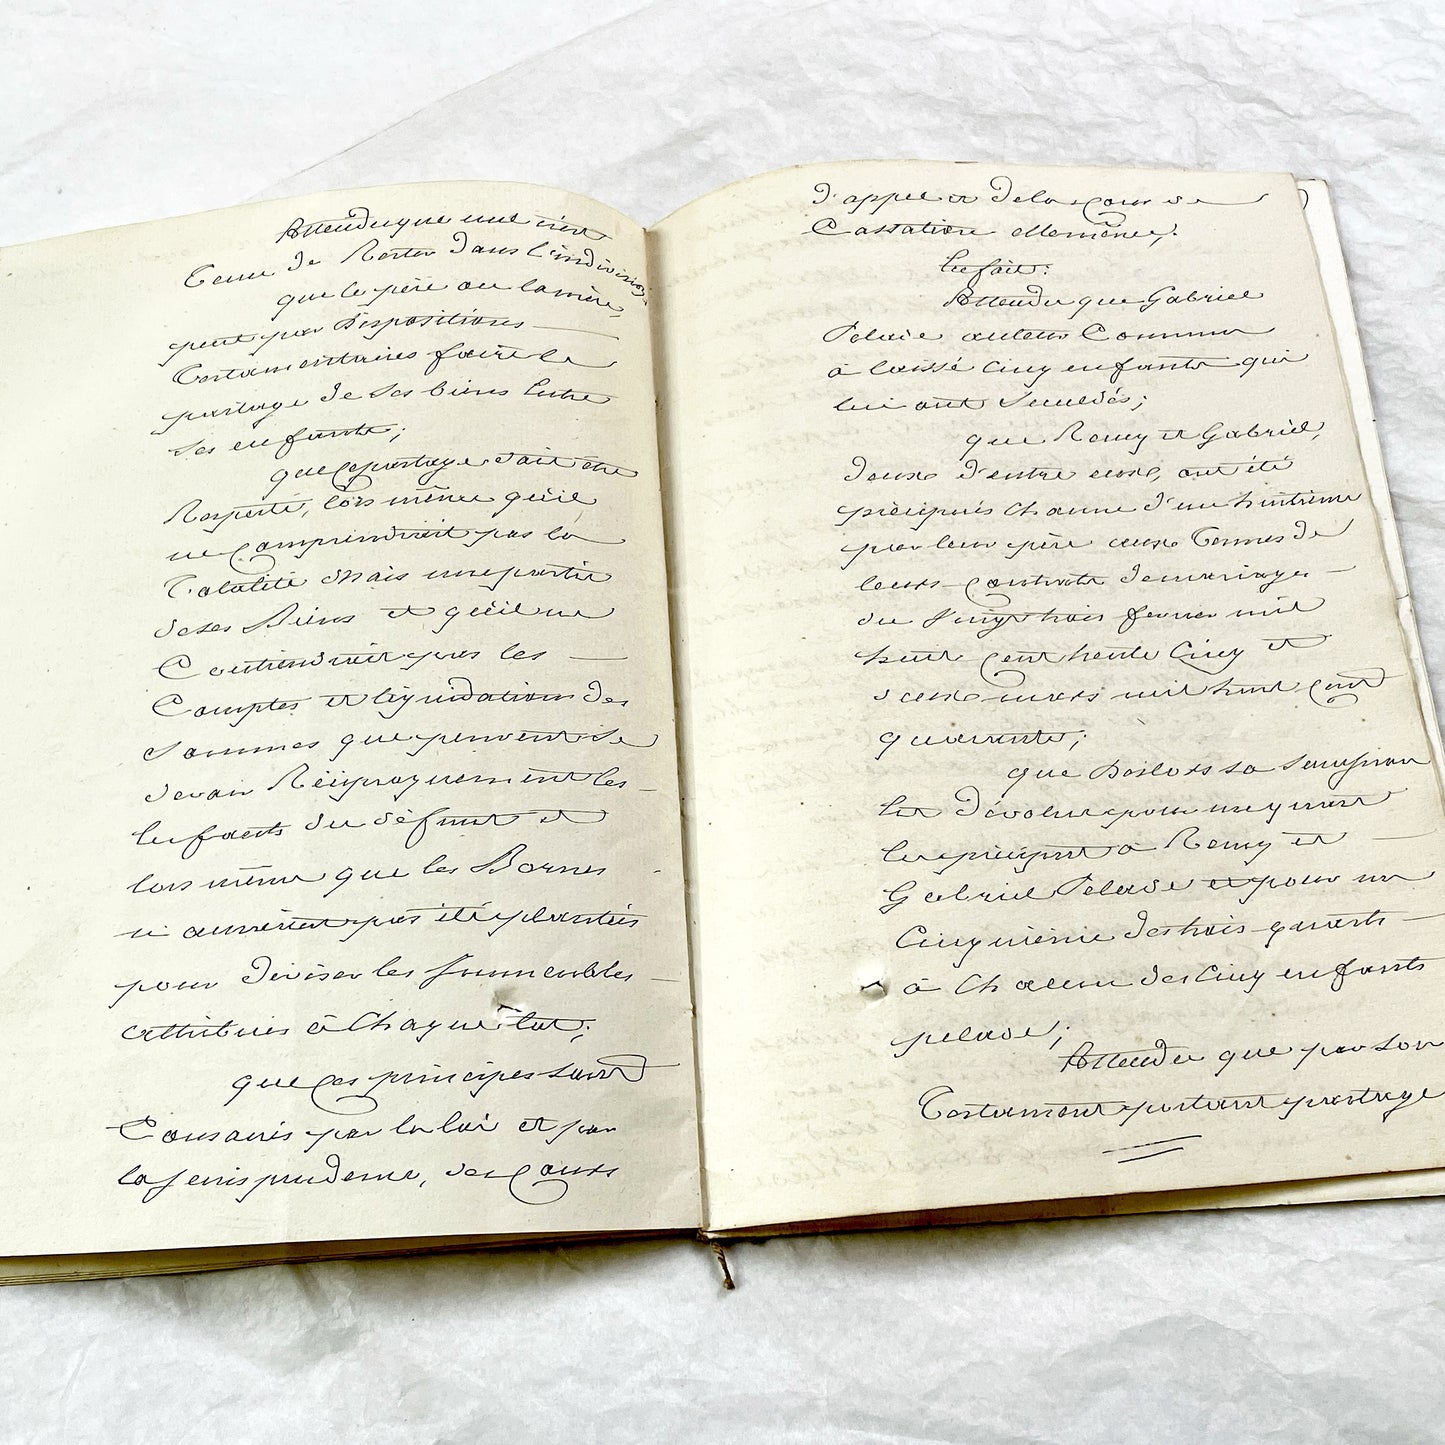 Attendu que nul n'est
Tenu de Rester dans l'indivision
que le père ou la mère,
peut par Dispositions
Testamentaires faire le
partage de ses biens Entre
ses enfants;
que ce partage doit être
Respecté, lors même qu'il
ne comprendrait pas la
Totalité mais une partie
de ses Biens et qu'il ne
Contiendrait pas les
Comptes et liquidations des
Sommes que peuvent se
devoir Réciproquement les
Enfants du défunt et
lors même que les Bornes
n'auraient pas été plantées
pour Diviser les Immeubles
attribués à Chaque lot;
que ces principes sont
Consacrés par la loi et par
la Jurisprudence, des Cours
d'appel et De la Cour de
Cassation elle même;
En fait:
Attendu que Gabriel
Pelade auteur Commun
à laissé Cinq enfants qui
lui ont Succédés;
que Remy et Gabriel,
Deux d'entre eux, ont été
préciputés Chacun d'un huitième
par leur père aux Termes de
leurs Contrats de mariage
du Vingt trois fevrier mil
huit Cent trente Cinq et
deux mars mil huit Cent
quarante;
que Deslors sa Succession
Est Dévolue pour un quart
En préciput à Remy et
Gabriel Pelade et pour un
Cinquième des trois quarts
à Chacun des Cinq enfants
pelade;
Attendu que par son
Testament portant partage